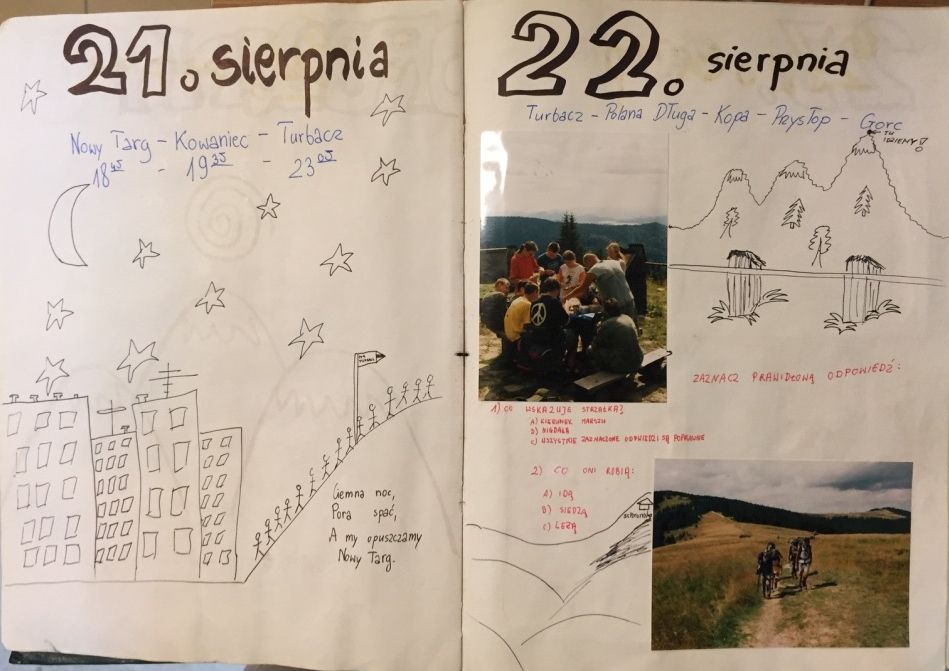 21. sierpnia
Nowy Targ - Kowaniec - Turbacz
18 45 - 19 35 - 23 05
NA TURBACZ
Ciemna noc,
Pora spać,
A my opuszczamy
Nowy Targ.
22. sierpnia
Turbacz - Polana Długa - Kopa - Przysłop - Gorc
TU IDZIEMY!
ZAZNACZ PRAWIDŁOWĄ ODPOWIEDŹ:
1) CO WSKAZUJE STRZAŁKA?
A) KIERUNEK MARSZU
B) MIGDAŁA
C) WSZYSTKIE ZAZNACZONE ODPOWIEDZI SĄ POPRAWNE
2) CO ONI ROBIĄ:
A) IDĄ
B) SIEDZĄ
C) LEŻĄ